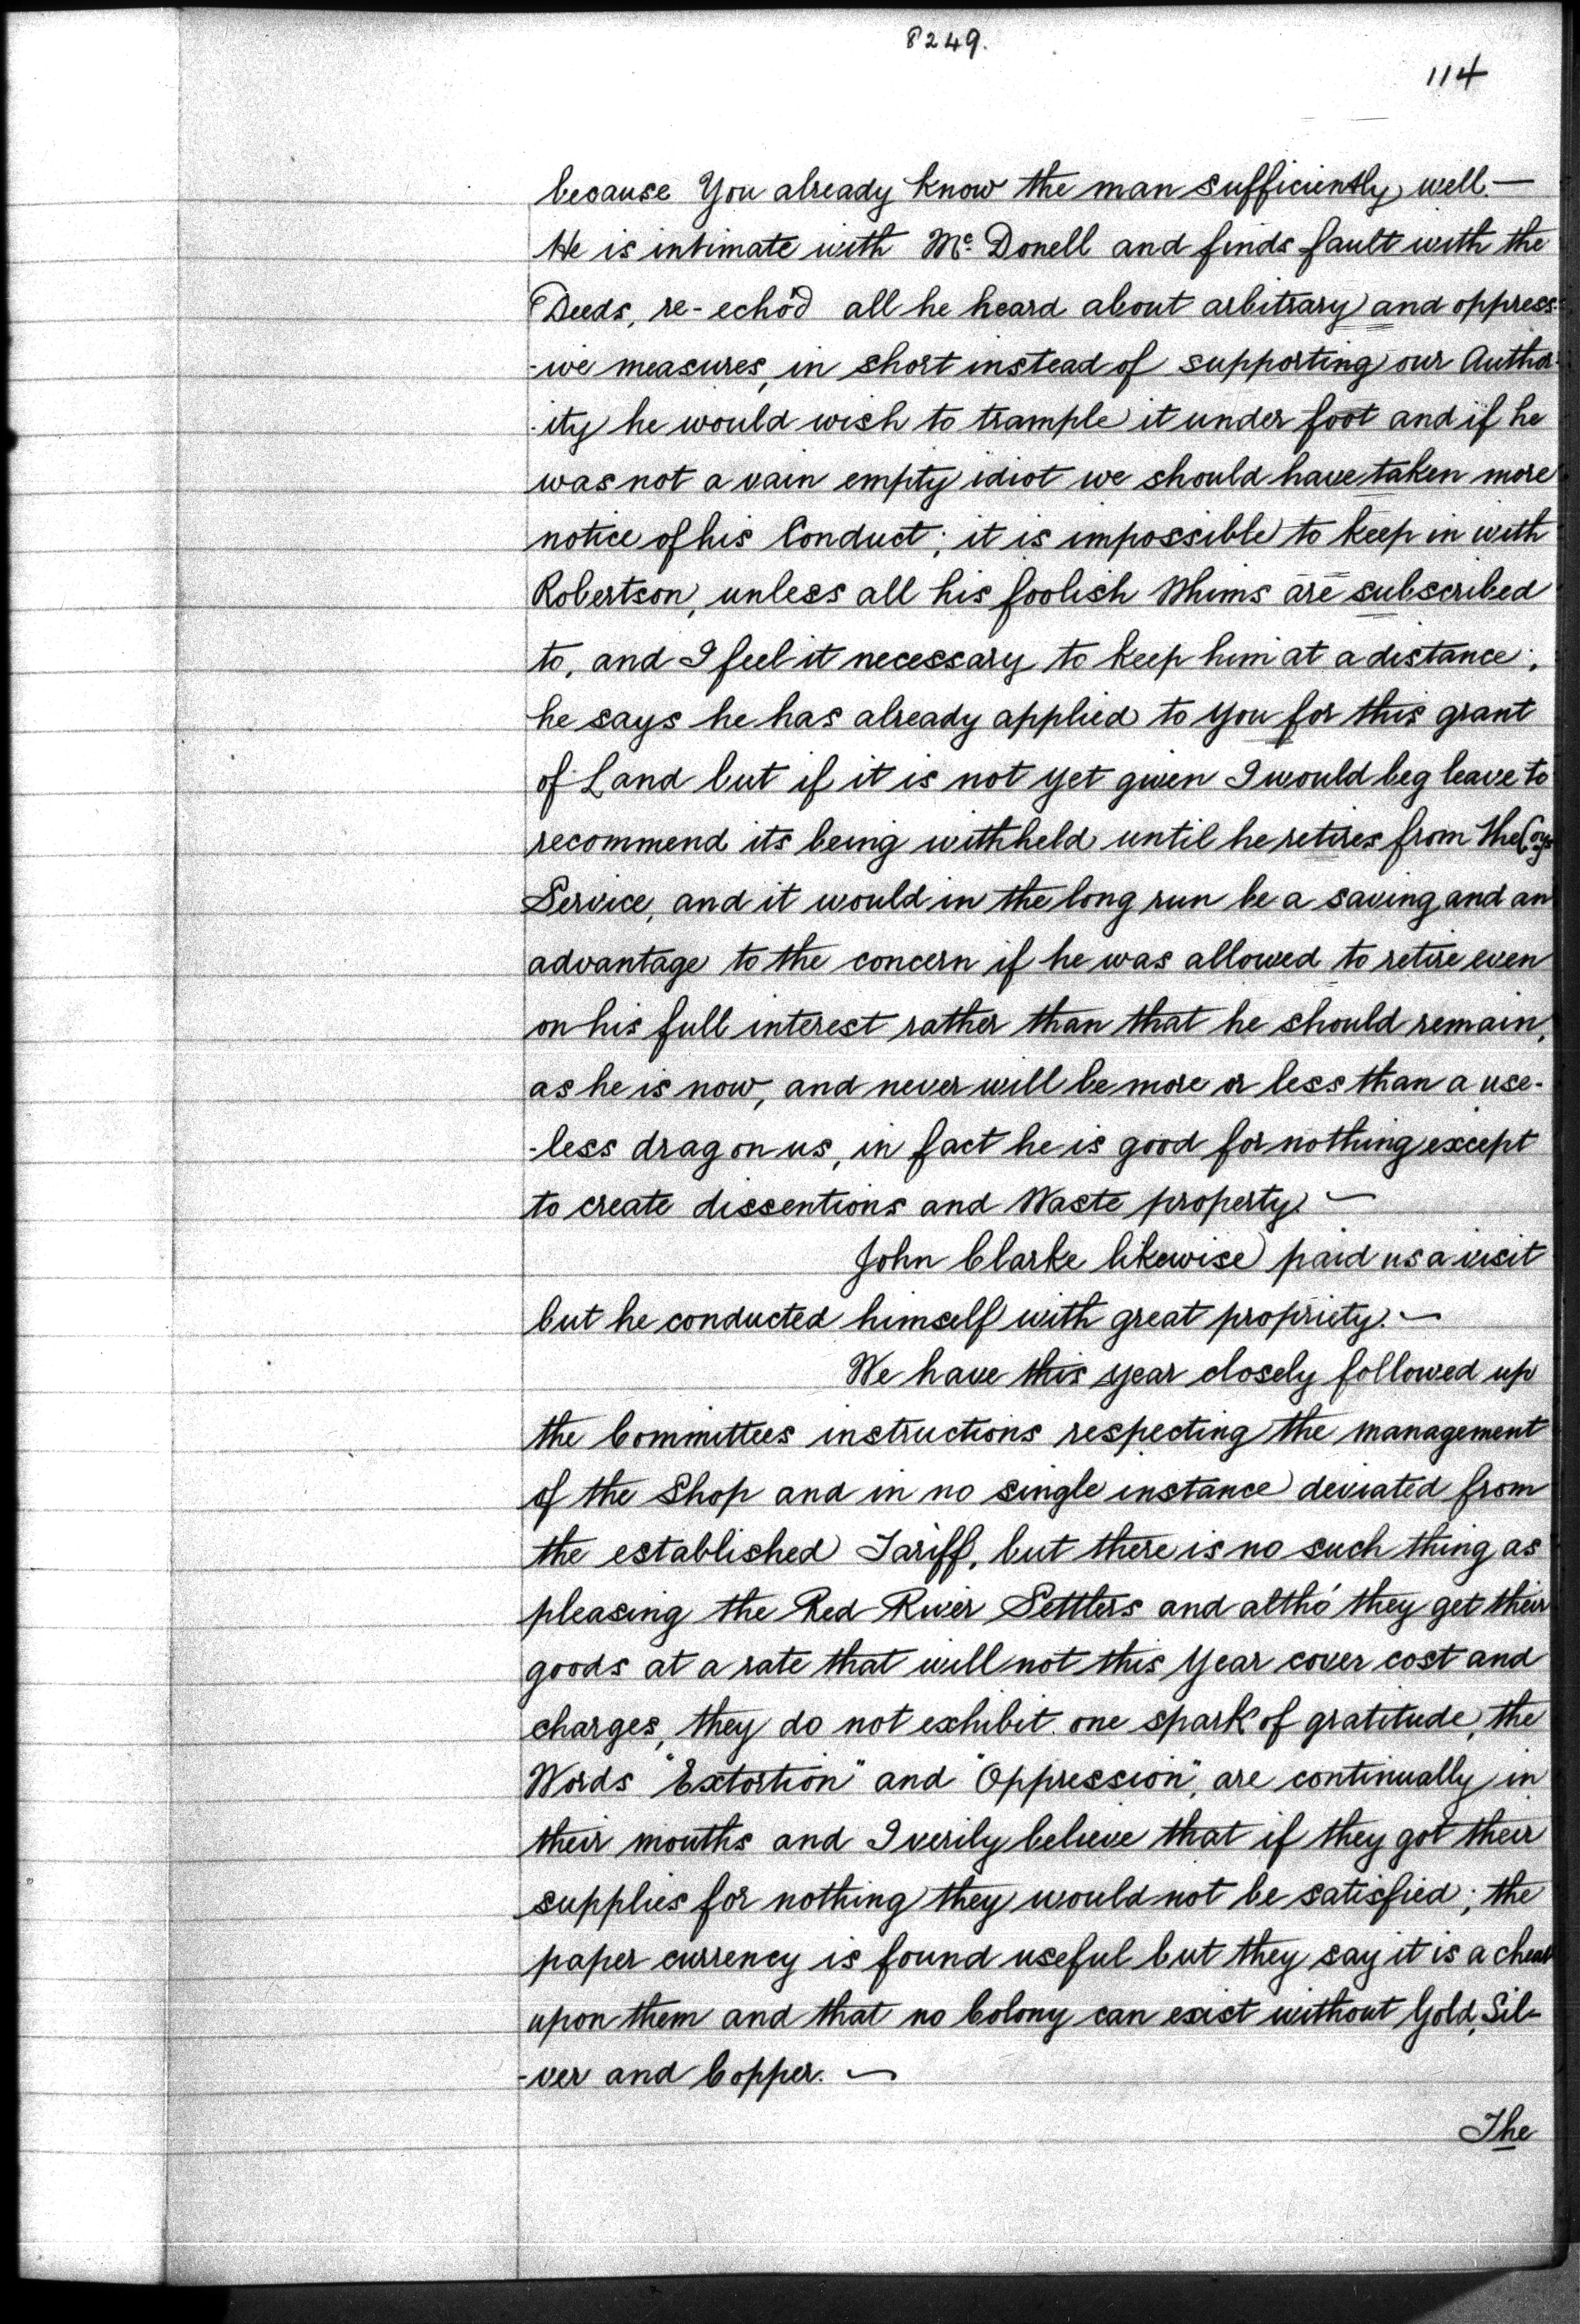 8249.
114
because You already know the man sufficiently well. —
He is intimate with Mc. Donell and finds fault with the
Deeds, re-echo'd all he heard about arbitrary and oppress-
-ive measures, in short instead of supporting our Author-
-ity he would wish to trample it under foot and if he
was not a vain empty idiot we should have taken more
notice of his Conduct; it is impossible to keep in with
Robertson, unless all his foolish Whims are subscribed
to, and I feel it necessary to keep him at a distance;
he says he has already applied to you for this grant
of Land but if it is not yet given I would beg leave to
recommend its being withheld until he retires from the Coys
Service, and it would in the long run be a saving and an
advantage to the concern if he was allowed to retire even
on his full interest rather than that he should remain,
as he is now, and never will be more or less than a use-
-less drag on us, in fact he is good for nothing except
to create dissentions and Waste property —
John Clarke likewise paid us a visit
but he conducted himself with great propriety. —
We have this year closely followed up
the Committees instructions respecting the management
of the Shop and in no single instance deviated from
the established Tariff, but there is no such thing as
pleasing the Red River Settlers and altho' they get their
goods at a rate that will not this Year cover cost and
charges, they do not exhibit one spark of gratitude, the
Words "Extortion" and "Oppression", are continually in
their mouths and I verily believe that if they got their
supplies for nothing they would not be satisfied; the
paper currency is found useful but they say it is a cheat
upon them and that no Colony can exist without Gold, Sil-
-ver and Copper. —
The